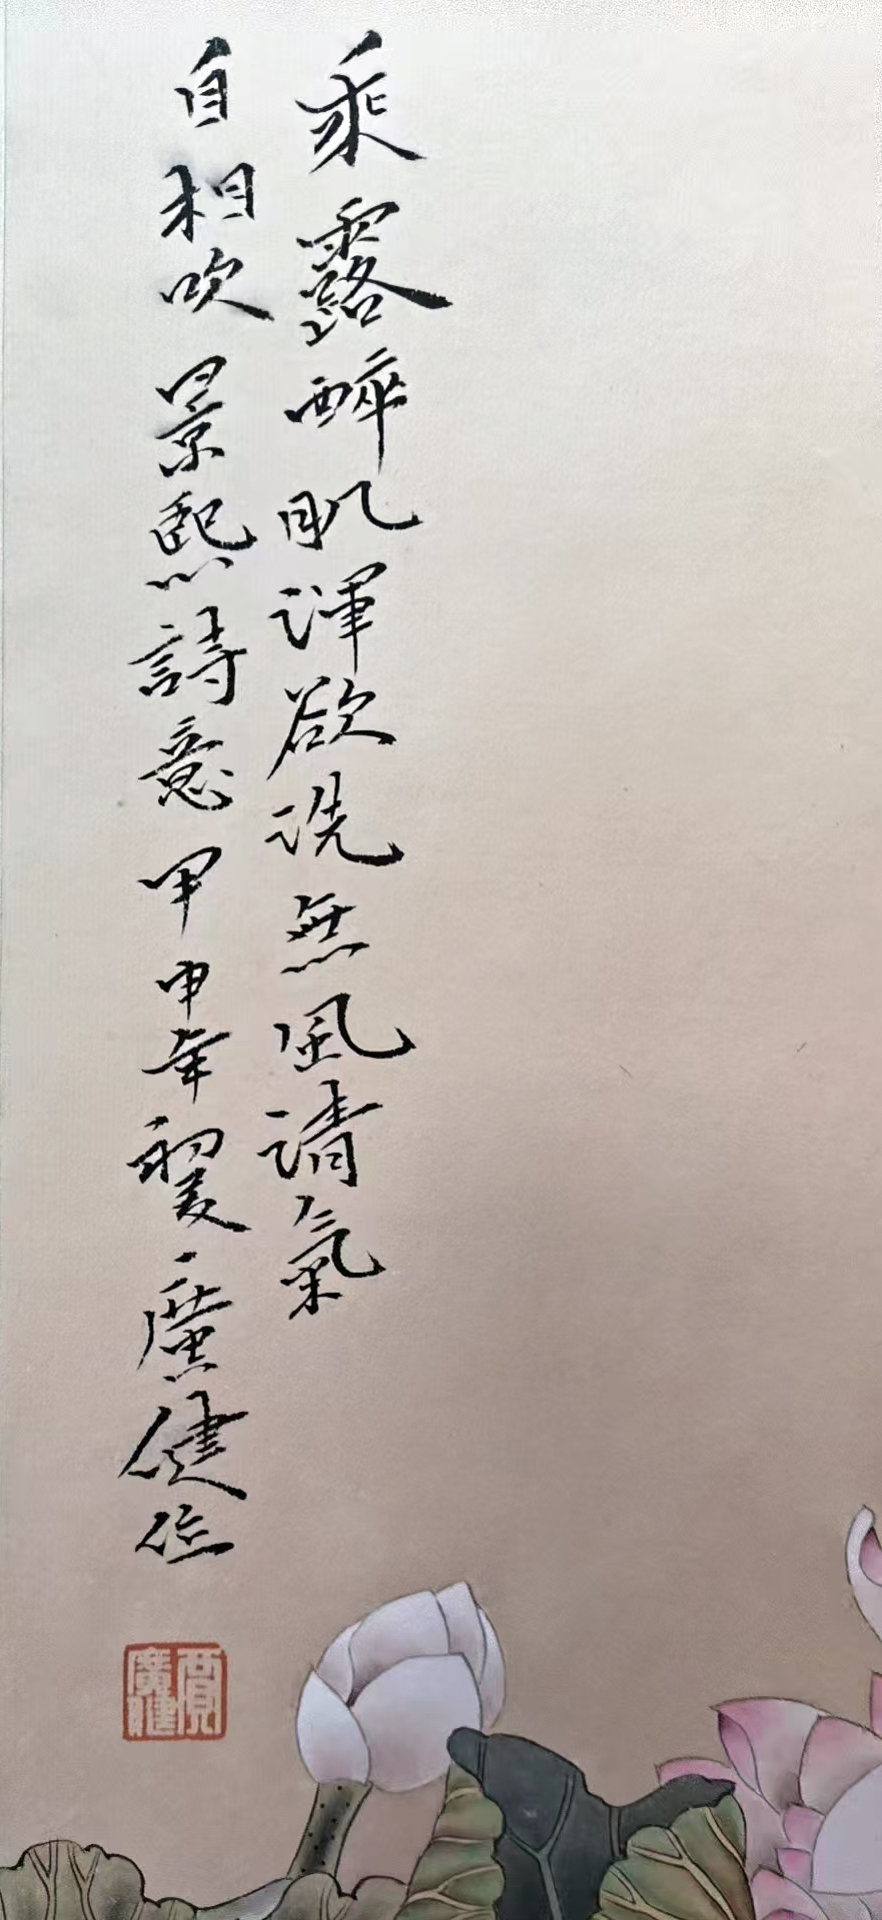 乘露醉肌渾欲洗無風清氣
自相吹景熙詩意甲申年初夏廣健作
賈廣健